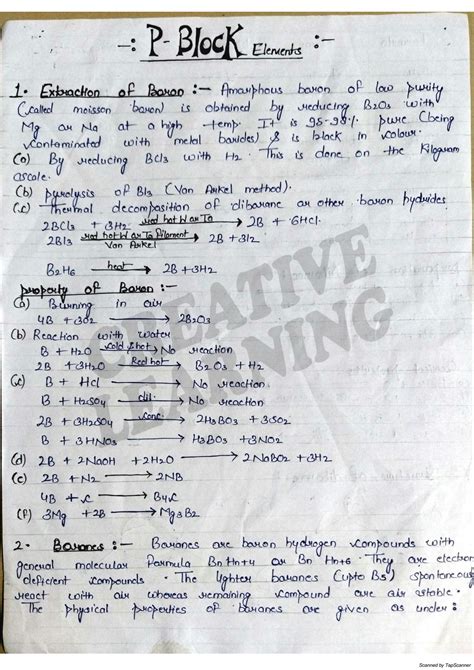 -: P-Block Elements :-
1. Extraction of Baron :- Amarphous baron of low purity
(called moisson baron) is obtained by reducing B2O3 with
Mg or Na at a high temp. It is 95-98% pure (being
contaminated with metal barides) & is black in colour.
(a) By reducing BCl3 with H2. This is done on the Kilogram
ascale.
(b) pyrolysis of BI3 (Van Arkel method).
(c) Thermal decomposition of dibarane or other boron hydrides.
2BCl3 + 3H2 red hot W or Ta → 2B + 6HCl.
2BI3 red hot W or Ta filament Van Arkel → 2B + 3I2
B2H6 heat → 2B + 3H2
property of Baron :-
(a) Burning in air
4B + 3O2 → 2B2O3
(b) Reaction with water
B + H2O cold & hot → No reaction
2B + 3H2O Red hot → B2O3 + H2
(c) B + HCl → No reaction
B + H2SO4 dil. → No reaction
2B + 3H2SO4 conc. → 2H3BO3 + 3SO2
B + 3HNO3 → H3BO3 + 3NO2
(d) 2B + 2NaOH + 2H2O → 2NaBO2 + 3H2
(e) 2B + N2 → 2NB
4B + C → B4C
(f) 3Mg + 2B → Mg3B2
2. Baranes :- Baranes are baron hydrogen compounds with
general molecular Formula BnHn+4 or BnHn+6. They are electron
deficient compounds. The lighter baranes (upto B5) spontaneously
react with air whereas remaining compound are air stable.
The physical properties of baranes are given as under:
CREATIVE
LEARNING
Scanned by TapScanner